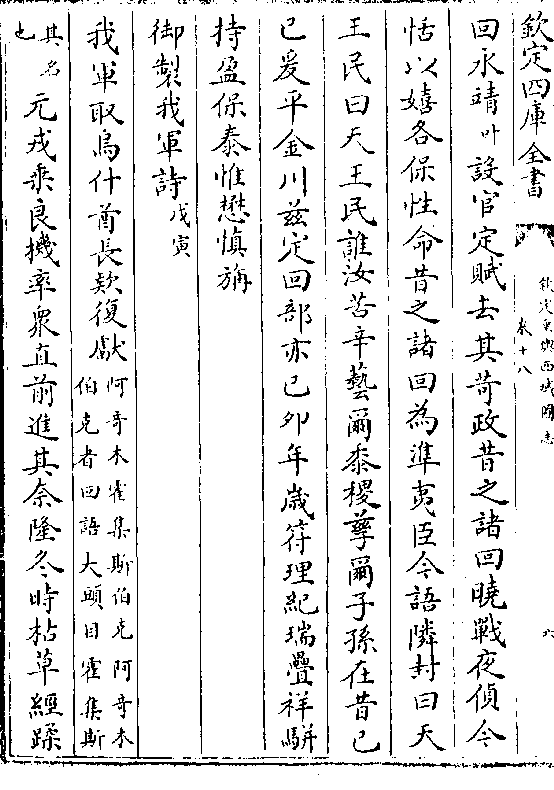 欽定四庫全書
欽定皇輿西域圖志
卷十八
六
回永靖叶設官定賦去其苛政昔之諸回曉戰夜偵今
恬以嬉各保性命昔之諸回為準夷臣今語隣封曰天
王民曰天王民誰汝苦辛藝爾黍稷孳爾子孫在昔己
已爰平金川兹定回部亦已卯年嵗符理紀瑞疊祥駢
持盈保泰惟懋慎旃
御製我軍詩戊寅
我軍取烏什酋長欵復獻阿奇木霍集斯伯克阿奇木
伯克者回語大頭目霍集斯
其名
也元戎乘良機率衆直前進其奈隆冬時枯草經蹂